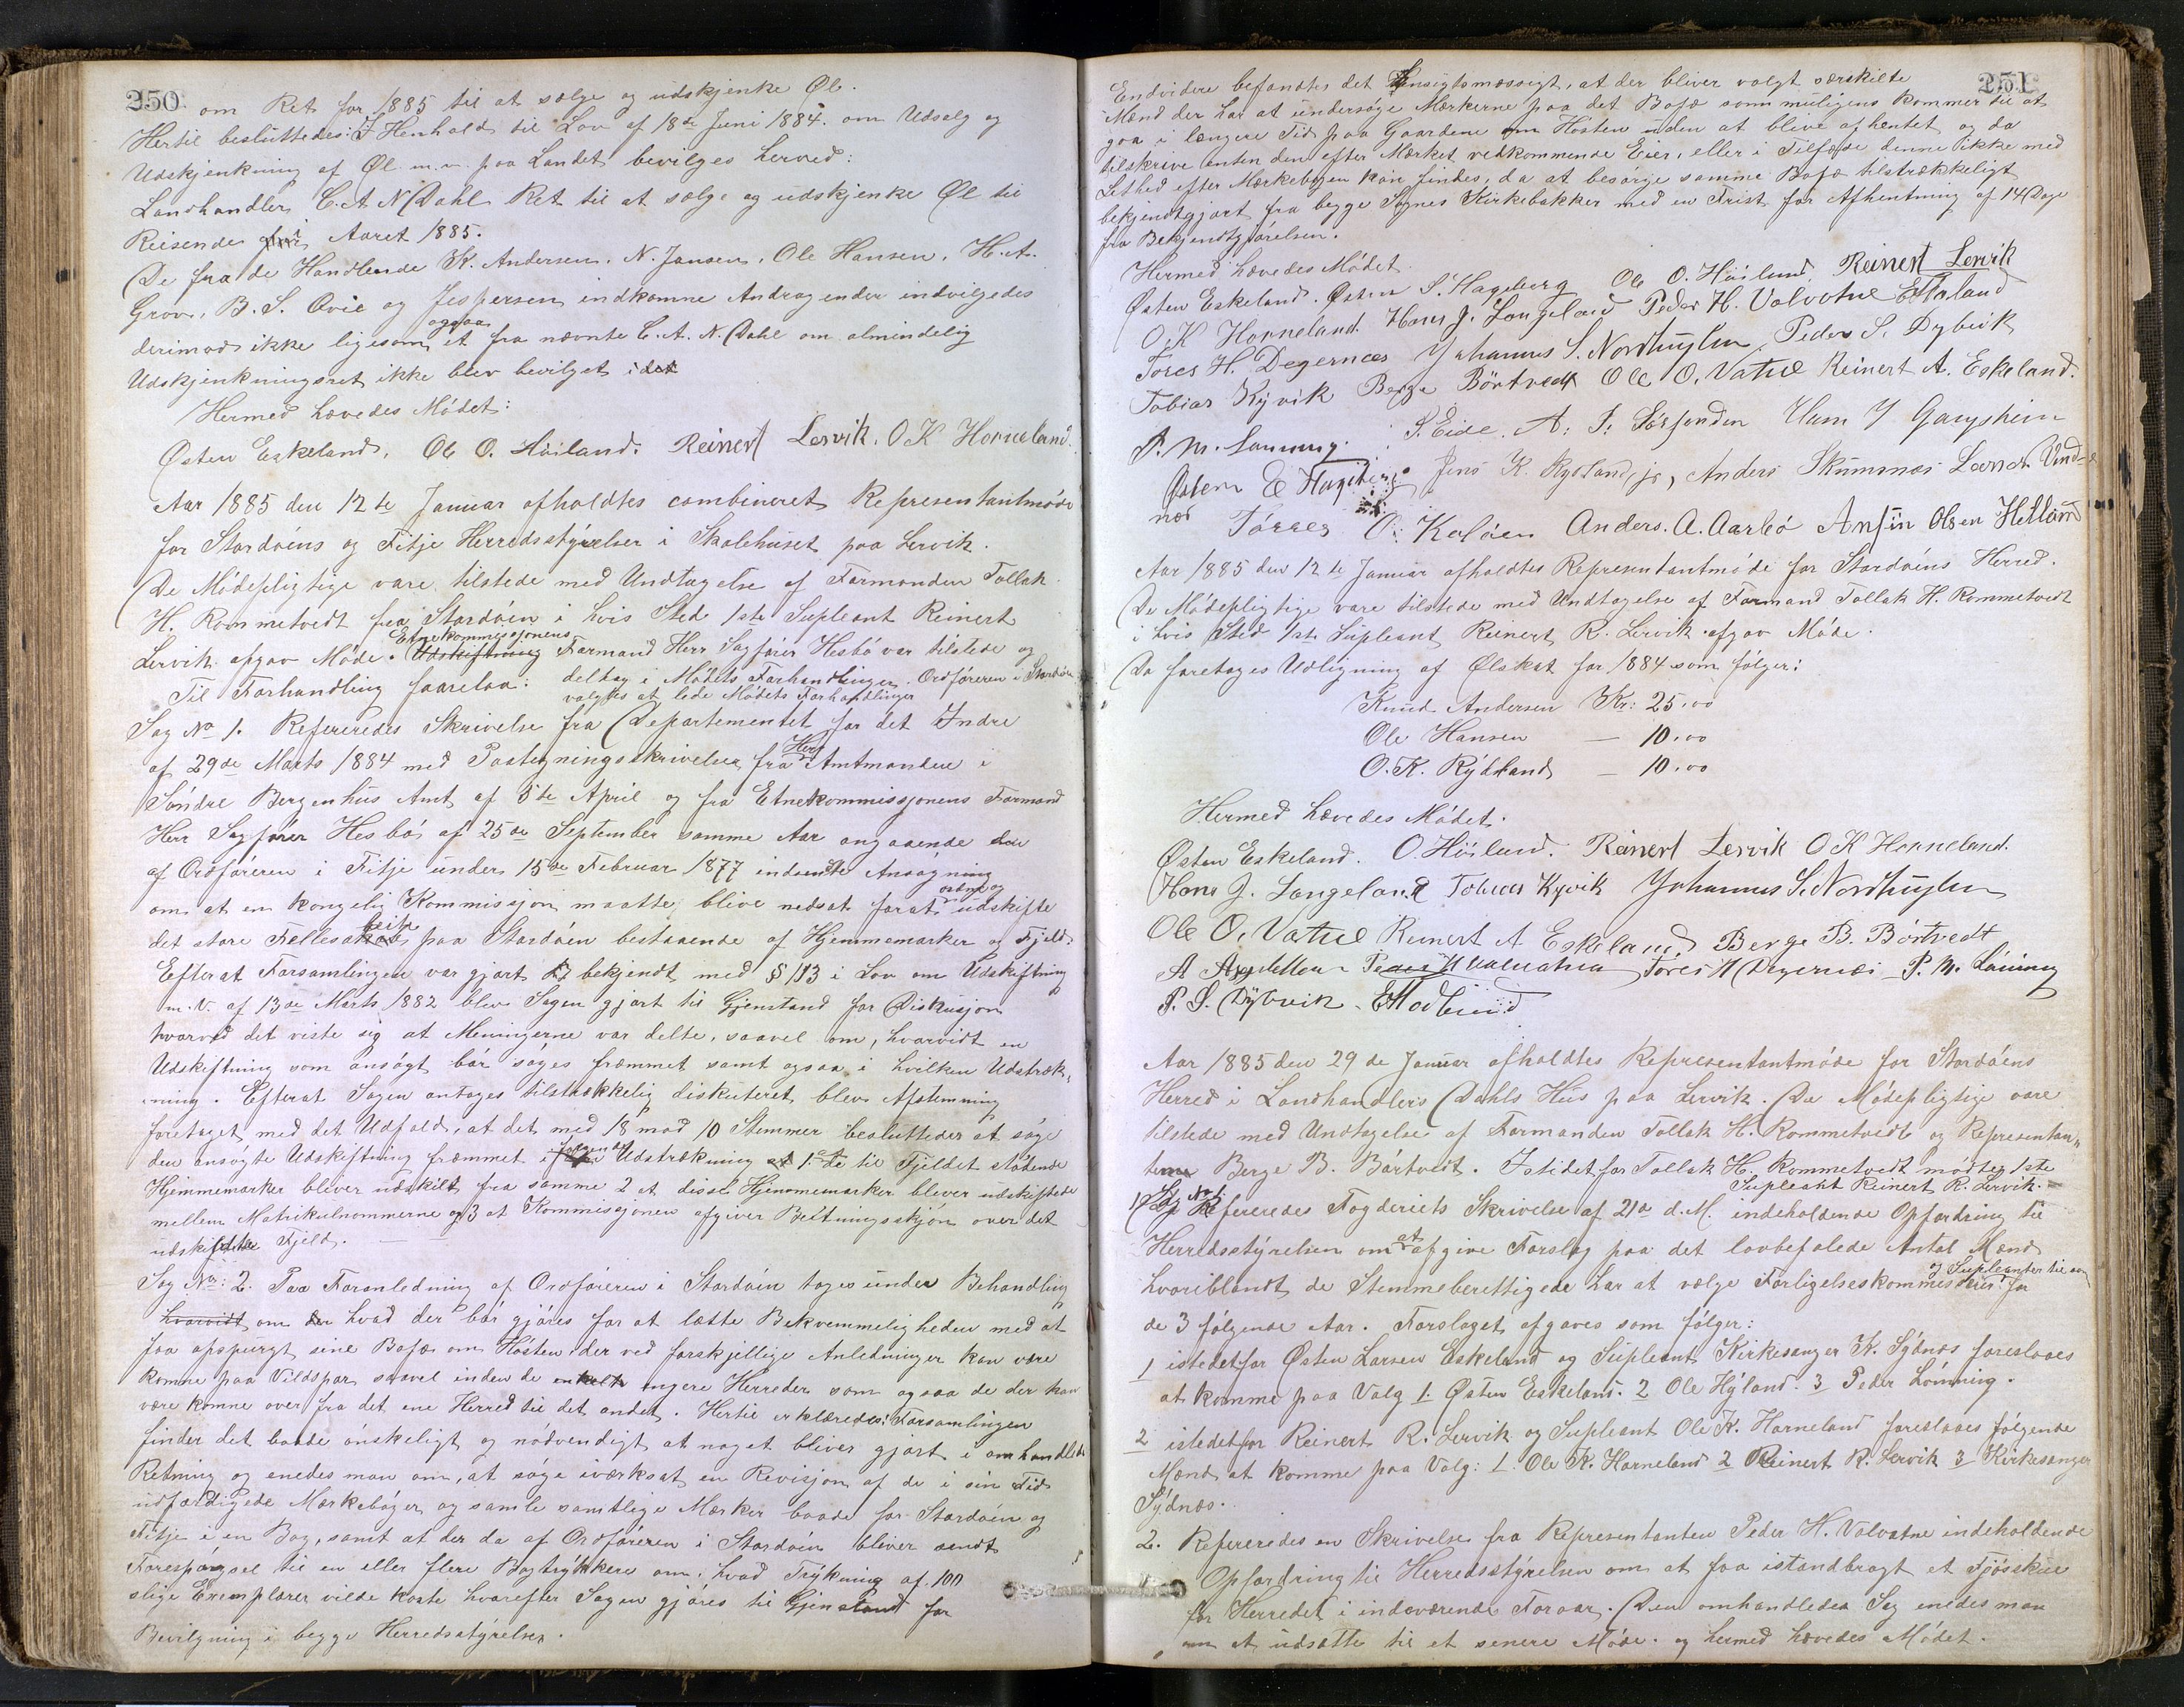 250.
om Ret for 1885 til at sælge og udskjenke Øl.
Hertil besluttedes: I Henhold til Lov af 18de Juni 1884. om Udsalg og
Udskjenkning af Øl m. v. paa Landet bevilges herved:
Landhandler C. A N Dahl Ret til at sælge og udskjenke Øl til
Reisende i Aaret 1885.
De fra de Handlende K. Andersen. N. Jansen. Ole Hansen. H. A.
Grov. B. S. Ovie og Jespersen indkomne Andragender indvilgedes
derimod ikke ligesom ogsaa et fra nævnte C. A. N. Dahl om almindelig
Udskjenkningsret ikke blev bevilget
Hermed hævedes Mödet:
Østen Eskeland. Ole O. Höiland. Reinert Lervik. O K Horneland.
Aar 1885 den 12te Januar afholdtes combineret Representantmöde
for Stordöens og Fitje Herredsstÿrelser i Skolehuset paa Lervik.
De Mödepligtige vare tilstede med Undtagelse af Formanden Tollak
H. Rommetvedt fra Stordöen i hvis Sted 1ste Supleant Reinert
Lervik afgav Möde. Etnekommissjonens Formand Herr Sagförer Hesbö var tilstede og
Til Forhandling foorelaa: deltog i Mödets Forhandlinger. Ordföreren i Stordöen
valgtes at lede Mödets Forhandlinger
Sag No 1. Refereredes Skrivelse fra Departementet for det Indre
af 29de Marts 1884 med Paategningsskrivelser fra Herr Amtmanden i
Söndre Bergenhus Amt af 5te April og fra Etnekommissjonens Formand
Herr Sagförer Hesbö af 25de September samme Aar angaaende den
af Ordföreren i Fitje under 15de Februar 1877 indsendte Ansögning
om at en kongelig Kommissjon maatte blive nedsat forat ordne og udskifte
det store Fellesbeite paa Stordöen bestaaende af Hjemmemarker og Fjeld.
Efterat Forsamlingen var gjort bekjendt med § 113 i Lov om Udskiftning
m. V. af 13de Marts 1882 blev Sagen gjort til Gjenstand for Diskusjon
hvorved det viste sig at Meningerne var delte, saavel om, hvorvidt en
Udskiftning som ansögt bör söges fræmmet samt ogsaa i hvilken Udstræk-
ning. Efterat Sagen antoges tilstrækkelig diskuteret blev Afstemning
foretaget med det Udfald, at det med 18 mod 10 Stemmer besluttedes at söge
den ansögte Udskiftning fræmmet i følgende Udstrækning 1. at de til Fjeldet stödende
Hjemmemarker bliver udskilt fra samme 2 at disse Hjemmemarker blever udskiftede
mellem Matrikulnommerne og 3 at Kommissjonen afgiver Beitningsskjön over det
udskiftede Fjeld.
Sag No: 2. Paa Foranledning af Ordföreren i Stordöen toges under Behandling
hvorvidt om hvad der bör gjöres for at lætte Bekvemmeligheden med at
faa opspurgt sine Bofæ om Hösten der ved forskjellige Anledninger kan være
komne paa Vildspor saavel inden de enkelte Herreder som ogsaa de der kan
være komne over fra det ene Herred til det andet. Hertil erklæredes: Forsamlingen
finder det baade önskeligt og nödvendigt at noget bliver gjort i omhandlede
Retning og enedes man om, at söge iværksat en Revisjon af de i sin Tid
udfærdigede Mærkeböger og samle samtlige Mærker baade for Stordöen og
Fitje i en Bog, samt at der da af Ordföreren i Stordöen bliver sendt
Forespörgsel til en eller flere Bogtrÿkkere om, hvad Trÿkning af 100
slige Exemplarer vilde koste hvorefter Sagen gjöres til Gjenstand for
Bevilgning i begge Herredsstÿrelser.
251.
Endvidere befandtes det Hensigtsmæssigt, at der bliver valgt særskilte
Mænd der har at undersöge Mærkerne paa det Bofæ som muligens kommer til at
gaa i længere Tid paa Gaardene om Hösten uden at blive afhentet og da
tilskrive enten den efter Mærket vedkommende Eier, eller i Tilfælde denne ikke med
Lethed efter Mærkebogen kan findes, da at besörge samme Bofæ tilstrækkeligt
bekjendtgjort fra begge Sognes Kirkebakker med en Frist for Afhentning af 14 Dage
fra Bekjendtgjörelsen.
Hermed hævedes Mödet.
Østen Eskeland. Østen S. Hageberg Ole O. Höiland. Reinert Lervik
O K Horneland. Hans J. Langeland Peder H. Valvatne
Töres H. Degernæs Johannes S. Nordhuglen Peder S. Dybvik
Tobias Kÿvik Berge Börtvedt Ole O. Vatne Reinert A. Eskeland.
P. M. Lönning. S. Eide. A:
Østen E Hageberg Jens K. Rydland, jr, Anders Skumsnæs Lars A. Vind-
næs Törres O. Kalöen Anders. A. Aarbö Anfin Olsen Helland
Aar 1885 den 12te Januar afholdtes Representantmöde for Stordöens Herred.
De Mödepligtige vare tilstede med Undtagelse af Formand Tollak H. Rommetvedt
i hvis Sted 1ste Supleant Reinert R. Lervik afgav Möde.
Da foretoges Udligning af Ølskat for 1884 som fölger:
Knud Andersen Kr: 25.00
Ole Hansen — 10.00
O. K. Rÿdland — 10.00
Hermed hævedes Mödet.
Østen Eskeland. O. Höiland. Reinert Lervik O K Horneland.
Hans J. Langeland Tobias Kyvik Johannes S. Nordhuglen
Ole O. Vatne Reinert A Eskeland Berge B. Börtvedt
A Peder H Valvatna Töres H Degernæs P. M. Lönning
P. S. Dÿbvik.
Aar 1885 den 29de Januar afholdtes Representantmöde for Stordöens
Herred i Landhandlers Dahls Hus paa Lervik. De Mödepligtige vare
tilstede med Undtagelse af Formanden Tollak H. Rommetvedt og Representan-
terne Berge B. Börtvedt. Istedetfor Tollak H. Rommetvedt mödte 1ste
Supleant Reinert R. Lervik.
Sag No 1. Refereredes Fogderiets Skrivelse af 21de d. M. indeholdende Opfordring til
Herredsstÿrelsen om at afgive Forslag paa det lovbefalede Antal Mænd
hvoriblandt de Stemmeberettigede har at vælge Forligelseskommissærer og Supleanter til samme for
de 3 fölgende Aar. Forslaget afgaves som fölger:
1 istedetfor Østen Larsen Eskeland og Supleant Kirkesanger K. Sÿdnæs foreslaaes
at komme paa Valg 1. Østen Eskeland. 2 Ole Hÿland. 3 Peder Lönning.
2 istedetfor Reinert R. Lervik og Supleant Ole K. Horneland foreslaaes fölgende
Mænd at komme paa Valg: 1. Ole K. Horneland 2 Reinert R. Lervik 3 Kirkesanger
Sÿdnæs.
2. Refereredes en Skrivelse fra Representanten Peder H. Valvatne indeholdende
Opfordring til Herredsstÿrelsen om at faa istandbragt et Fjösskue
for Herredet i indeværende Foraar. Den omhandledes Sag enedes man
om at udsætte til et senere Möde. og hermed hævedes Mödet.